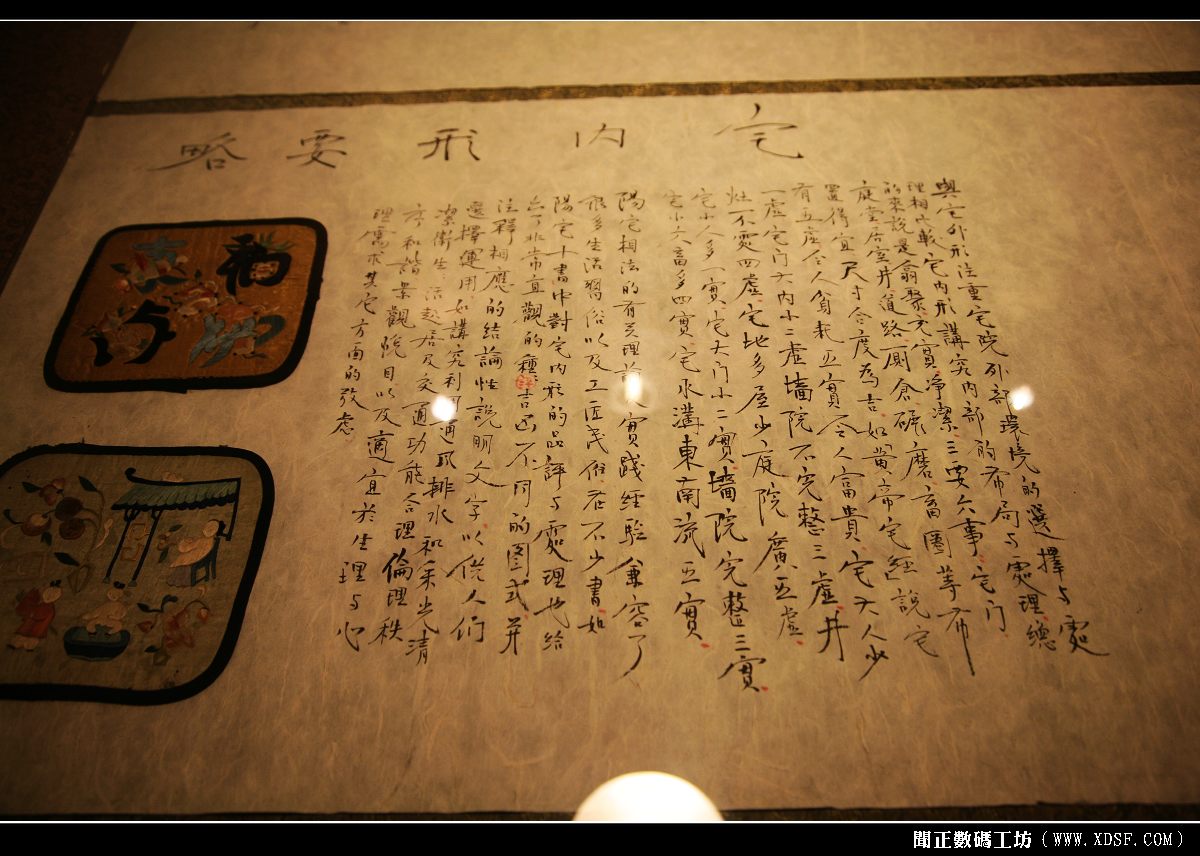 宅內形要略
與宅外形注重宅院外部環境的選擇与處
理相比較宅内形講究内部的布局与處理總
的來說是翕聚充實净潔三要六事宅门
庭堂居室井道路厕倉碾磨畜圈等布
置得宜尺寸合度為吉如黄帝宅經說宅
有五虚令人貧耗五實令人富貴宅大人少
一虚宅门大内小二虚墙院不完整三虚井
灶不處四虚宅地多屋少庭院廣五虚
宅小人多一實宅大门小二實墙院完整三實
宅小六畜多四實宅水溝東南流五實
陽宅相法的有关理論實踐经验兼容了
很多生活習俗以及工匠民俗在不少書如
陽宅十書中對宅内形的品評与處理也给
出了非常直觀的種種吉凶不同的图式并
注釋相應的结論性說明文字以供人们
選擇運用如講究利用通風排水和采光清
潔衛生活起居及交通功能合理倫理秩
序和諧景觀悅目以及適宜於生理与心
理需求其它方面的攷虑
福
聞正數碼工坊（WWW.XDSF.COM）